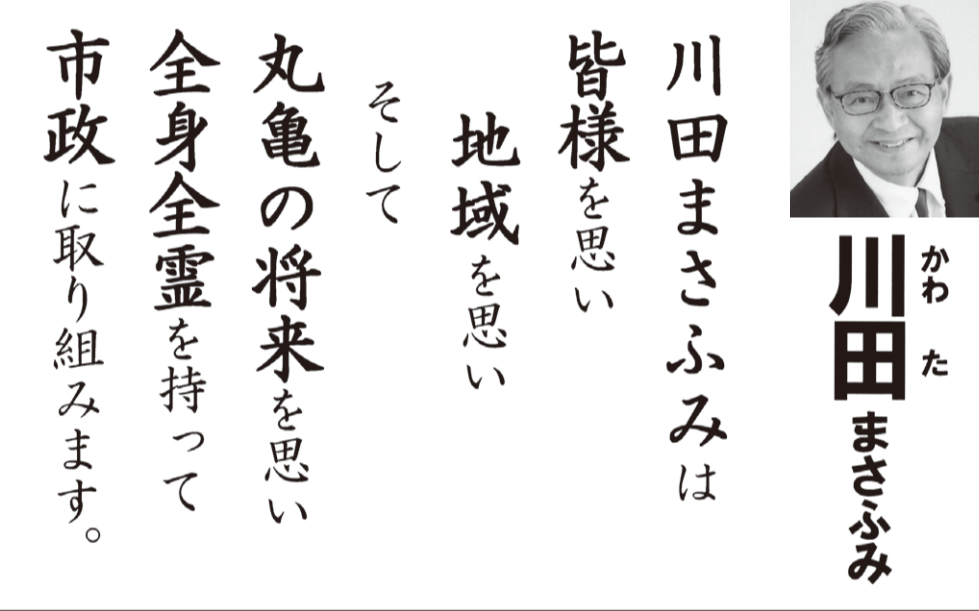 川田まさふみ
かわた
川田まさふみは
皆様を思い
地域を思い
そして
丸亀の将来を思い
全身全霊を持って
市政に取り組みます。